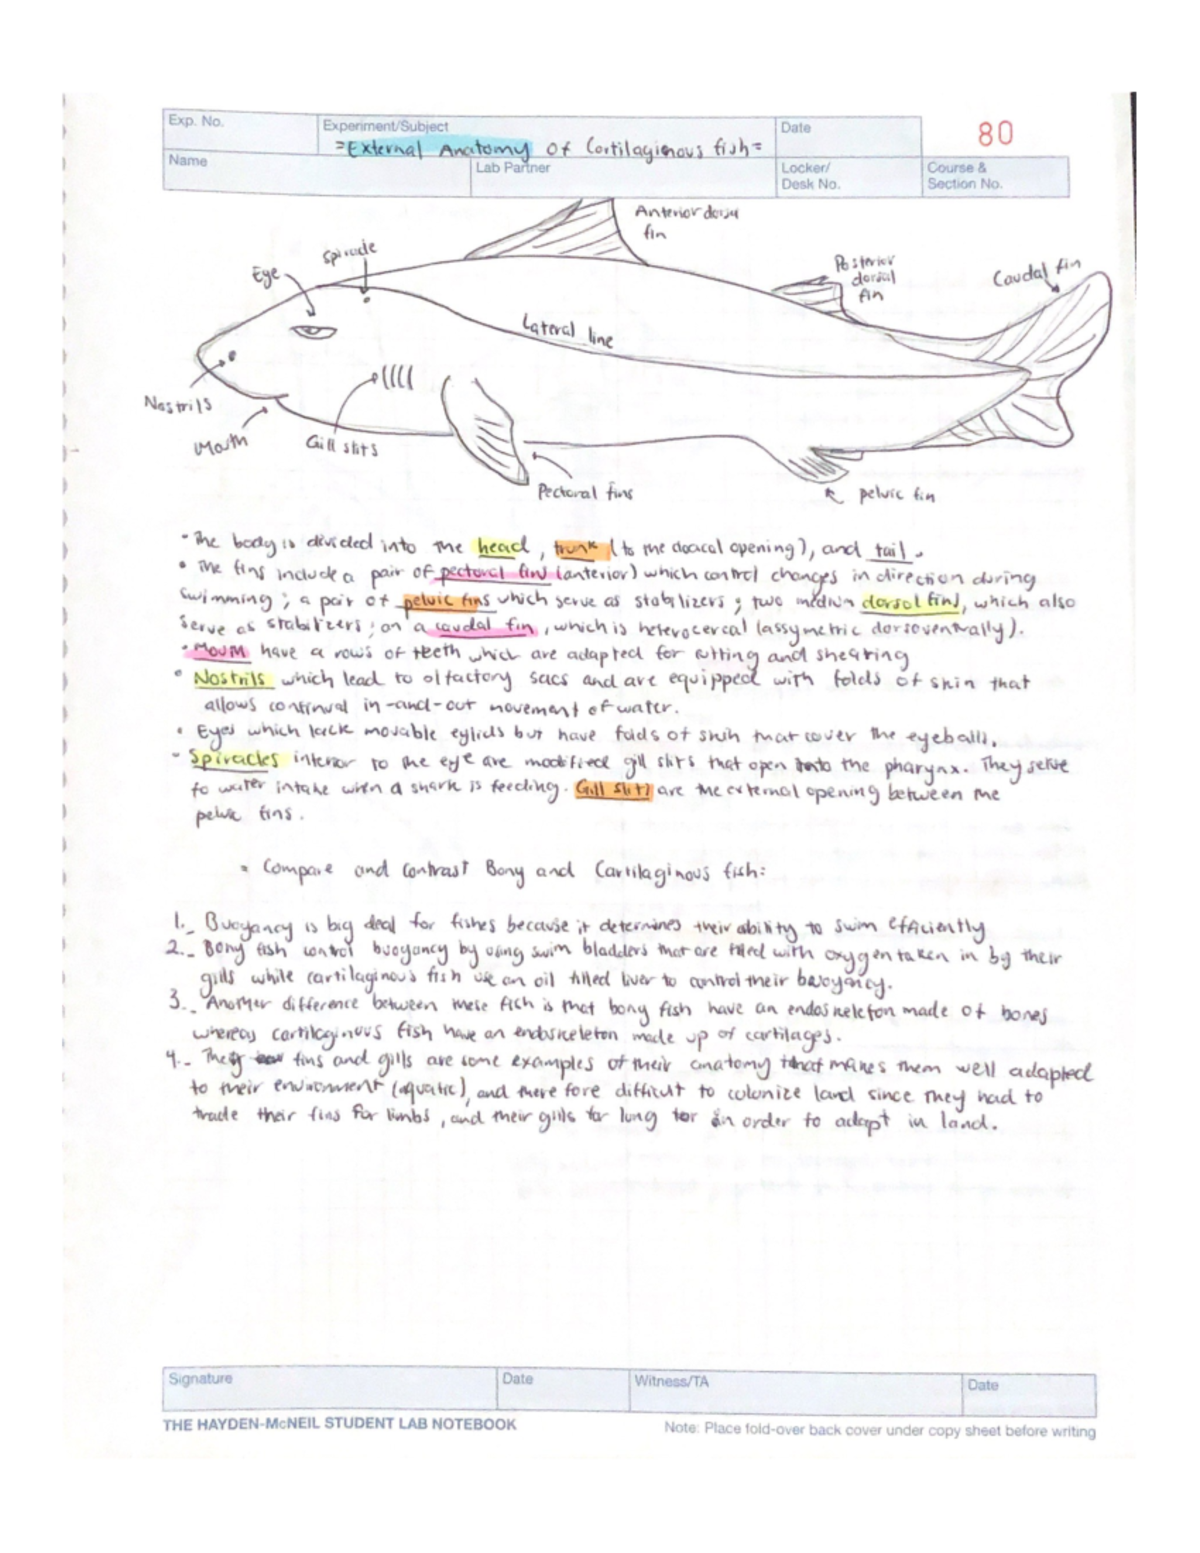 Exp. No.
Experiment/Subject
=External Anatomy of Cartilaginous fish=
Date
80
Name
Lab Partner
Locker/
Desk No.
Course &
Section No.
Anterior dorsal
fin
Spiracle
Eye
Posterior
dorsal
fin
Caudal fin
Lateral line
Nostrils
Mouth
Gill slits
Pectoral fins
pelvic fin
• The body is divided into the head, trunk (to the cloacal opening), and tail.
• The fins include a pair of pectoral fins (anterior) which control changes in direction during
swimming; a pair of pelvic fins which serve as stabilizers; two median dorsal fins, which also
serve as stabilizers; on a caudal fin, which is heterocercal (assymetric dorsoventrally).
• Mouth have a rows of teeth which are adapted for cutting and shearing
• Nostrils which lead to olfactory sacs and are equipped with folds of skin that
allows continual in-and-out movement of water.
• Eyes which lack movable eylids but have folds of skin that cover the eyeballs.
- Spiracles interior to the eye are modified gill slits that open into the pharynx. They serve
to water intake when a shark is feeding. Gill slits are the external opening between the
pelvic fins.
• Compare and contrast Bony and Cartilaginous fish:
1._ Buoyancy is big deal for fishes because it determines their ability to swim efficiently
2._ Bony fish control buoyancy by using swim bladders that are filled with oxygen taken in by their
gills while cartilaginous fish use an oil filled liver to control their buoyancy.
3._ Another difference between these fish is that bony fish have an endoskeleton made of bones
whereas cartilaginous fish have an endoskeleton made up of cartilages.
4._ They fins and gills are some examples of their anatomy that makes them well adapted
to their environment (aquatic), and there fore difficult to colonize land since they had to
trade their fins for limbs, and their gills for lung for in order to adapt in land.
Signature
Date
Witness/TA
Date
THE HAYDEN-McNEIL STUDENT LAB NOTEBOOK
Note: Place fold-over back cover under copy sheet before writing